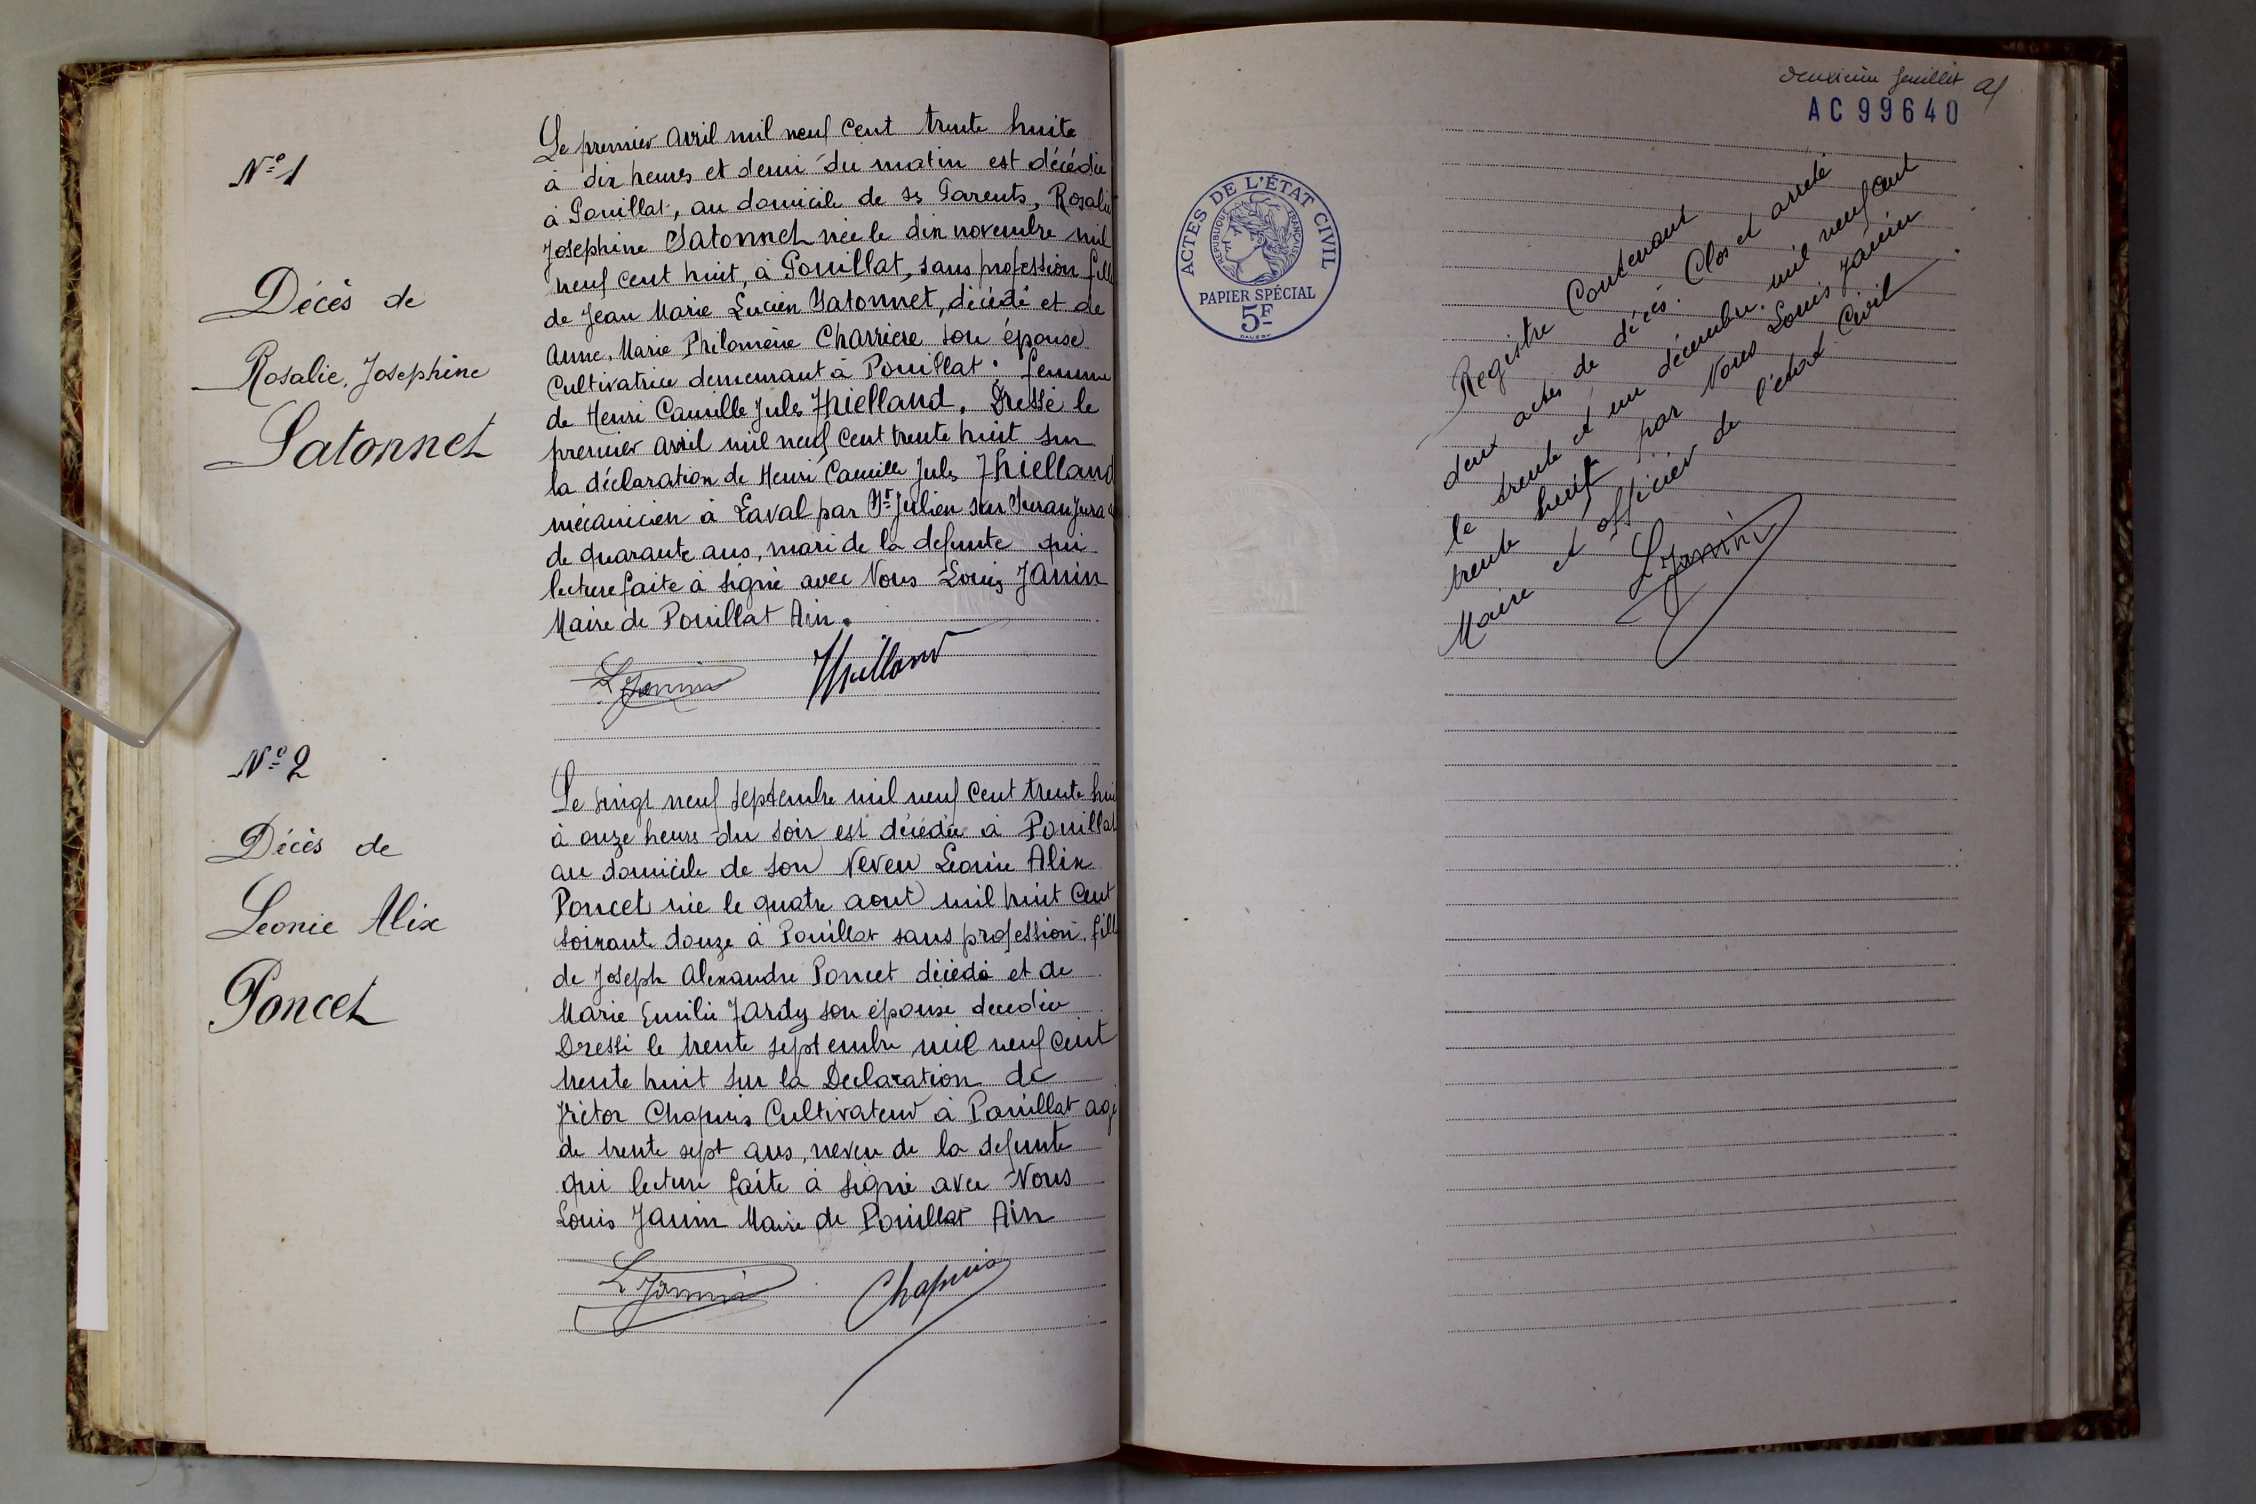 N° 1
Décès de
Rosalie, Josephine
Satonnet
Le premier avril mil neuf cent trente huite
à dix heures et demi du matin est décédée
à Pouillat, au domicile de ses Parents, Rosalie
Josephine Satonnet née le dix novembre mil
neuf cent huit, à Pouillat, sans profession fille
de Jean Marie Lucien Satonnet, décédé et de
Anne, Marie Philomène Charriere son épouse
Cultivatrice demeurant à Pouillat : femme
de Henri Camille Jules Thielland. Dressé le
premier avril mil neuf cent trente huit sur
la déclaration de Henri Camille Jules Thielland
mécanicien à Laval par St Julien sur Suran Jura
de quarante ans, mari de la defunte qui
lecture faite à signé avec Nous Louis Janin
Maire de Pouillat Ain.
L Janin Thielland
N° 2
Décès de
Leonie Alix
Poncet
Le vingt neuf septembre mil neuf cent trente hui
à onze heures du soir est décédée à Pouillat
au domicile de son Neveu Leonie Alix
Poncet née le quatre aout mil huit cent
soixante douze à Pouillat sans profession, fille
de Joseph Alexandre Poncet décédé et de
Marie Emilie Jardy son épouse decedée
Dressé le trente septembre mil neuf cent
trente huit sur la Declaration de
Victor Chapuis Cultivateur à Pouillat age
de trente sept ans, neveu de la defunte
qui lecture faite à signé avec Nous
Louis Janin Maire de Pouillat Ain
L Janin Chapuis
deuxième feuillet
AC 99640
ACTES DE L'ÉTAT CIVIL
RÉPUBLIQUE FRANÇAISE
PAPIER SPÉCIAL
5F
Registre Contenant
deux actes de décès. Clos et arrêté
le trente et un décembre mil neuf cent
trente huit par Nous Louis Janin
Maire et officier de l'état Civil
L Janin